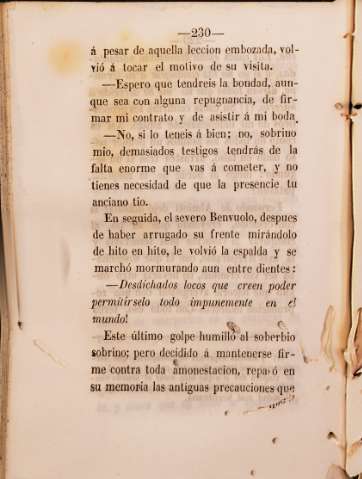 —230—
á pesar de aquella leccion embozada, vol-
vió á tocar el motivo de su visita.
—Espero que tendreis la bondad, aun-
que sea con alguna repugnancia, de fir-
mar mi contrato y de asistir á mi boda.
—No, si lo teneis á bien; no, sobrino
mio, demasiados testigos tendrás de la
falta enorme que vas á cometer, y no
tienes necesidad de que la presencie tu
anciano tio.
En seguida, el severo Benvuolo, despues
de haber arrugado su frente mirándolo
de hito en hito, le volvió la espalda y se
marchó mormurando aun entre dientes:
—Desdichados locos que creen poder
permitírselo todo impunemente en el
mundo!
Este último golpe humilló al soberbio
sobrino; pero decidido á mantenerse fir-
me contra toda amonestacion, repasó en
su memoria las antiguas precauciones que